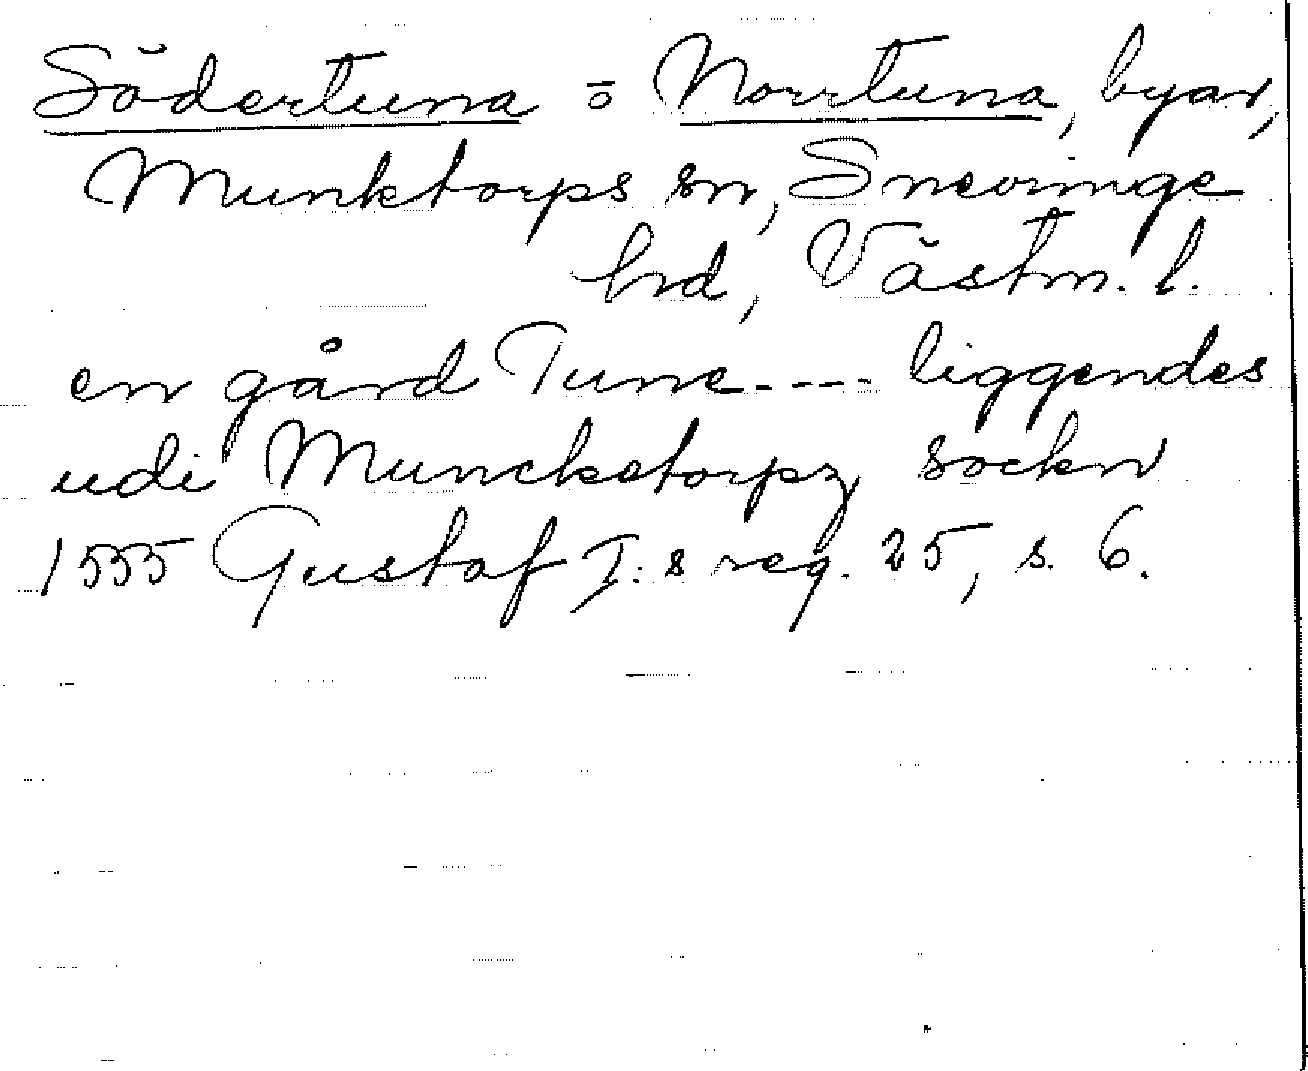 Södertuna o Norrtuna, byar,
Munktorps sn, Snevringe
hrd, Västm. l.
en gård Tune---- liggendes
udi Muncketorpz sockn
1555 Gustaf I:s reg. 25, s. 6.